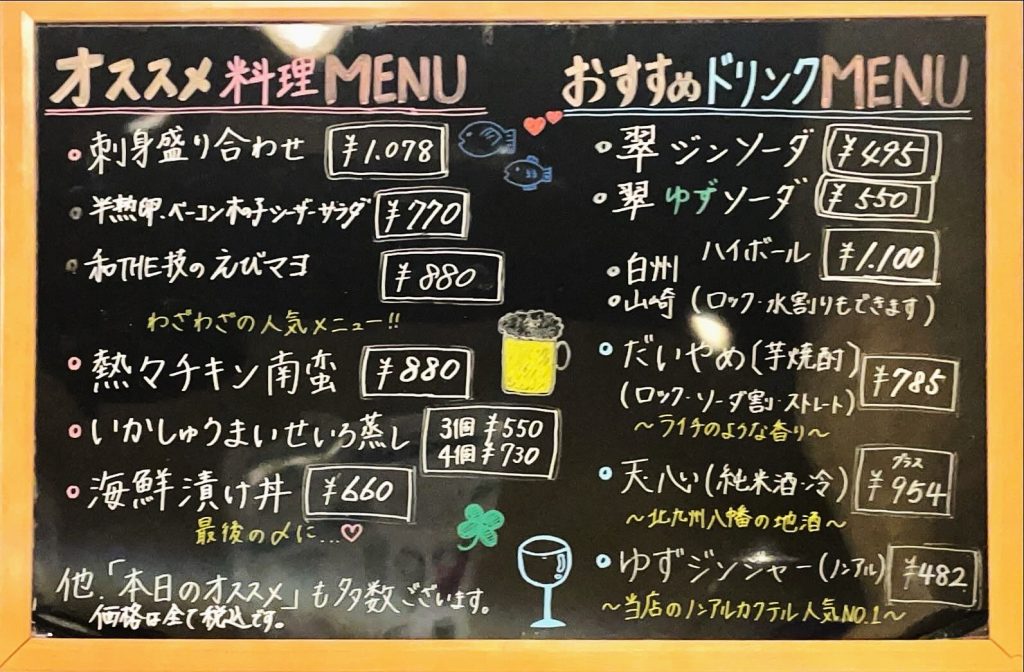 オススメ料理MENU
刺身盛り合わせ ¥1.078
半熟卵.ベーコン木の子シーザーサラダ ¥770
和THE技のえびマヨ ¥880
わざわざの人気メニュー!!
熱々チキン南蛮 ¥880
いかしゅうまいせいろ蒸し 3個 ¥550
4個 ¥730
海鮮漬け丼 ¥660
最後の〆に...♡
他.「本日のオススメ」も多数ございます。
価格は全て税込です。
おすすめドリンクMENU
翠ジンソーダ ¥495
翠ゆずソーダ ¥550
白州 ハイボール ¥1.100
山崎 (ロック・水割りもできます)
だいやめ(芋焼酎) ¥785
(ロック・ソーダ割・ストレート)
〜ライチのような香り〜
天心(純米酒・冷) グラス ¥954
〜北九州八幡の地酒〜
ゆずジンジャー(ノンアル) ¥482
〜当店のノンアルカクテル人気NO.1〜